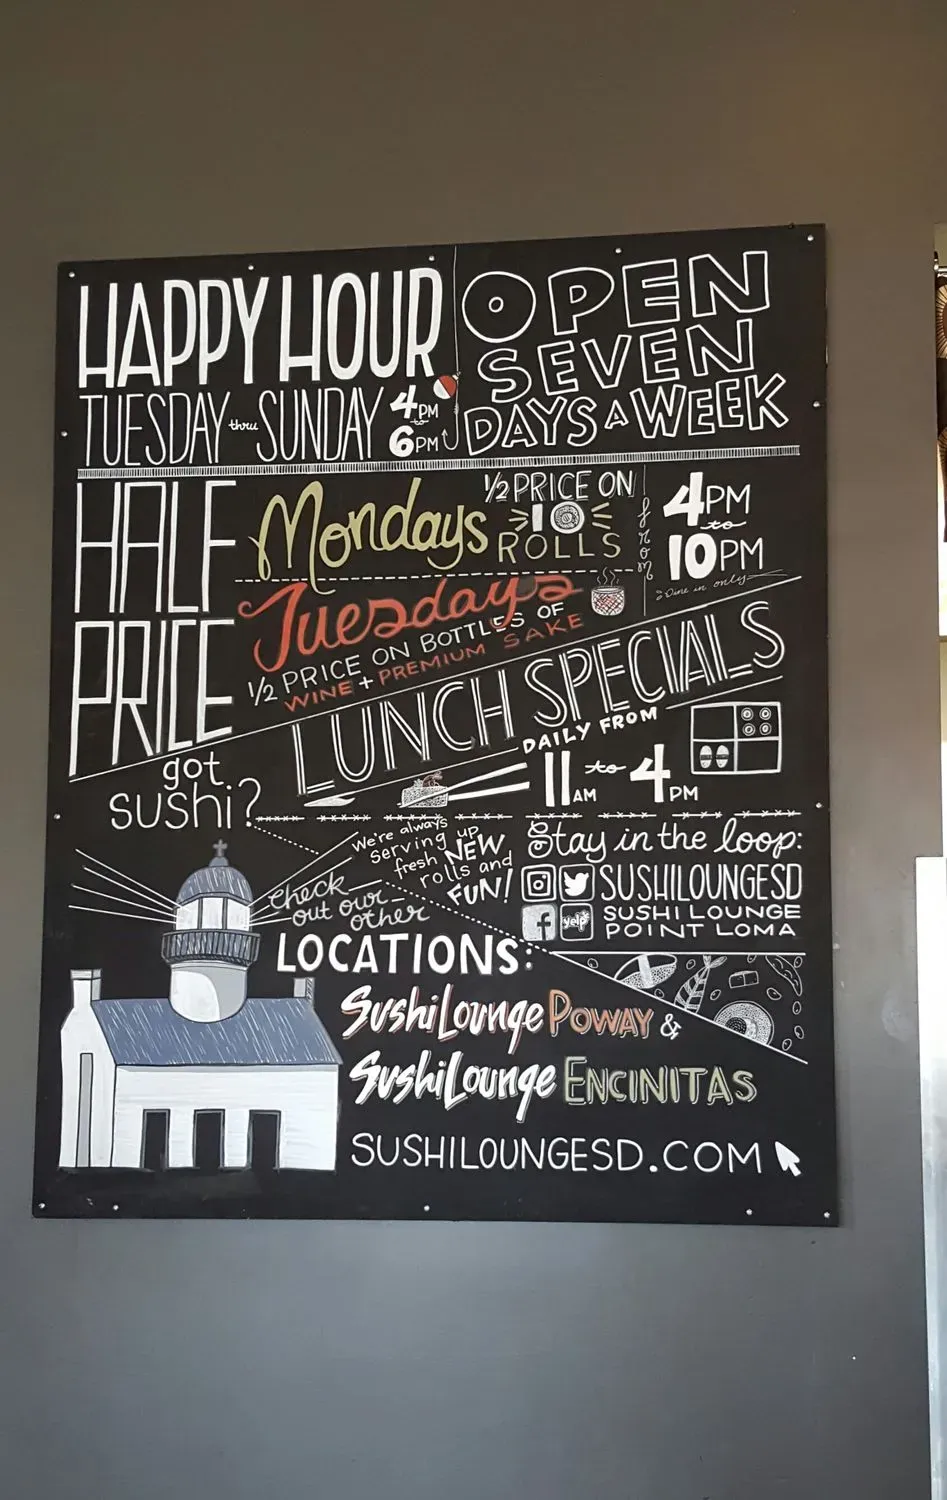 HAPPY HOUR
TUESDAY thru SUNDAY 4PM to 6PM
OPEN
SEVEN
DAYS A WEEK
HALF
PRICE
Mondays
1/2 PRICE ON
10
ROLLS
from
4PM
to
10PM
Dine in only
Tuesdays
1/2 PRICE ON BOTTLES OF
WINE + PREMIUM SAKE
LUNCH SPECIALS
DAILY FROM
11AM to 4PM
got
sushi?
We're always
serving up
fresh NEW
rolls and
FUN!
Stay in the loop:
SUSHILOUNGESD
yelp
SUSHI LOUNGE
POINT LOMA
Check
out our
other
LOCATIONS:
SushiLounge POWAY &
SushiLounge ENCINITAS
SUSHILOUNGESD.COM